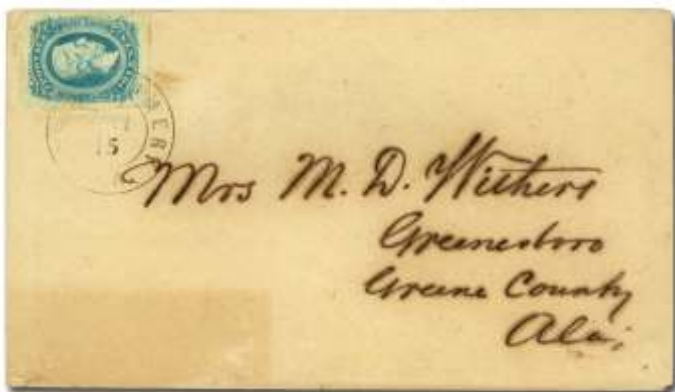 15
Mrs M. D. Withers
Greenesboro
Greene County
Ala.